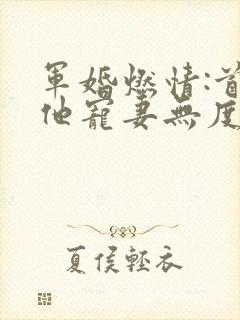 軍婚燃情:首
他寵妻無度
夏侯輕衣